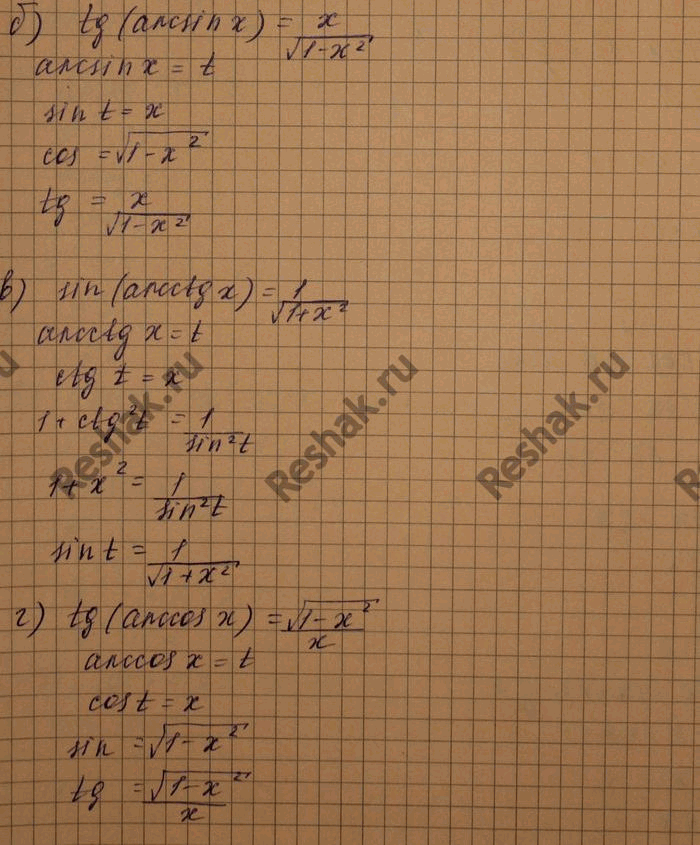 б) tg (arcsin x) = x/√(1-x²)
arcsin x = t
sin t = x
cos = √(1-x²)
tg = x/√(1-x²)
в) sin (arcctg x) = 1/√(1+x²)
arcctg x = t
ctg t = x
1 + ctg²t = 1/sin²t
1 + x² = 1/sin²t
sin t = 1/√(1+x²)
г) tg (arccos x) = √(1-x²)/x
arccos x = t
cos t = x
sin = √(1-x²)
tg = √(1-x²)/x
Reshak.ru
Reshak.ru
Reshak.ru